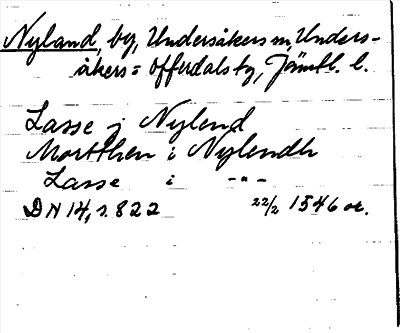 Nyland, by, Undersåkers sn, Unders-
åkers= Offerdals tg, Jämtl. l.
Lasse j Nylend
Mortthen i Nylendh
Lasse i -"-
DN 14, s. 822 22/2 1546 or.